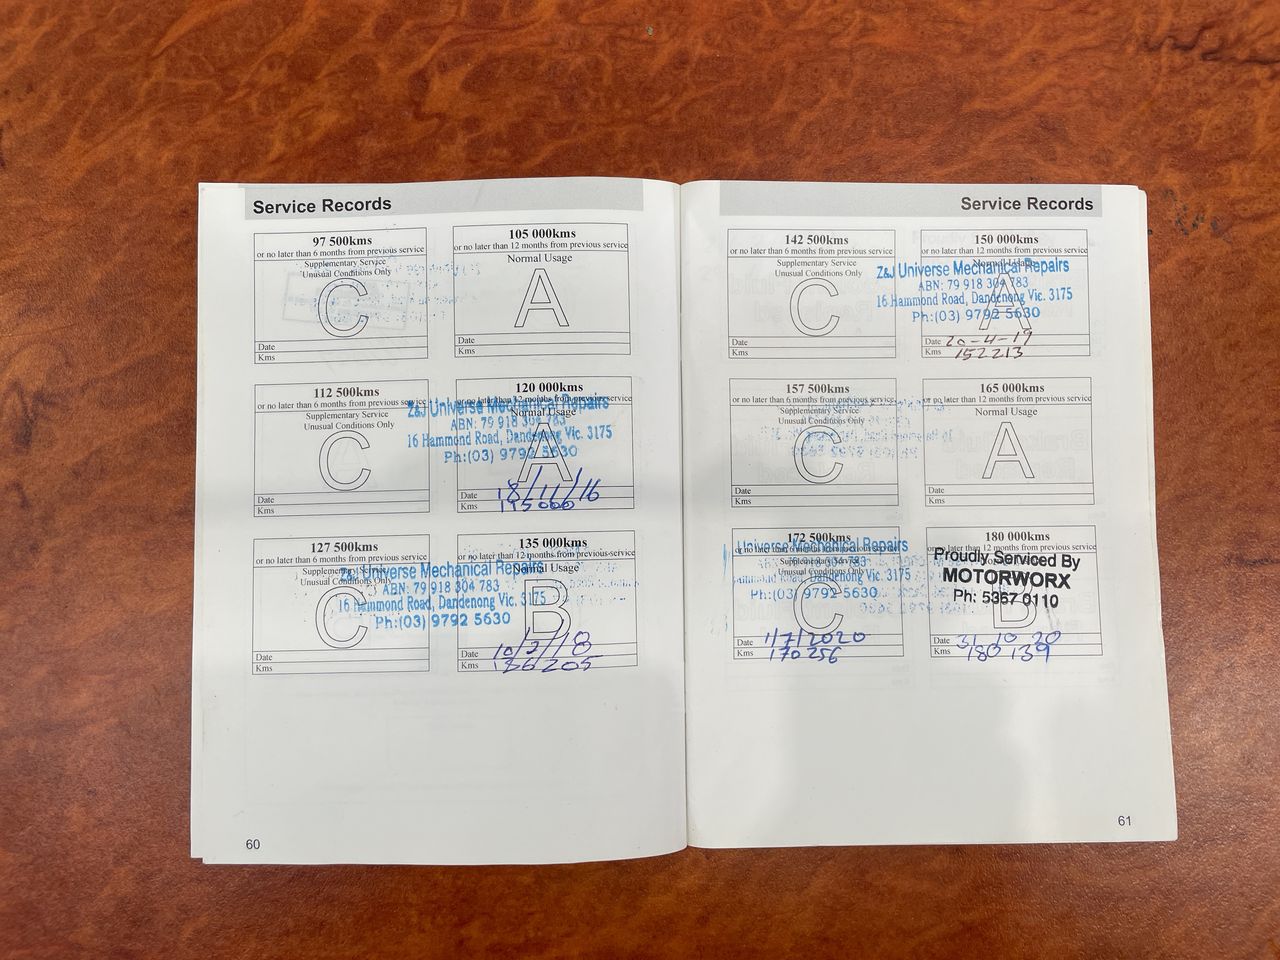 Service Records
97 500kms
or no later than 6 months from previous service
Supplementary Service
Unusual Conditions Only
C
Date
Kms
105 000kms
or no later than 12 months from previous service
Normal Usage
A
Date
Kms
112 500kms
or no later than 6 months from previous service
Supplementary Service
Unusual Conditions Only
C
Date
Kms
120 000kms
or no later than 12 months from previous service
Normal Usage
Z&J Universe Mechanical Repairs
ABN: 79 918 304 783
16 Hammond Road, Dandenong Vic. 3175
Ph:(03) 9792 5630
A
Date 18/11/16
Kms
127 500kms
or no later than 6 months from previous service
Supplementary Service
Unusual Conditions Only
Z&J Universe Mechanical Repairs
ABN: 79 918 304 783
16 Hammond Road, Dandenong Vic. 3175
Ph:(03) 9792 5630
C
Date
Kms
135 000kms
or no later than 12 months from previous service
Normal Usage
B
Date
Kms 136205
60
Service Records
142 500kms
or no later than 6 months from previous service
Supplementary Service
Unusual Conditions Only
C
Date
Kms
150 000kms
or no later than 12 months from previous service
Normal Usage
Z&J Universe Mechanical Repairs
ABN: 79 918 304 783
16 Hammond Road, Dandenong Vic. 3175
Ph:(03) 9792 5630
A
Date 20-4-19
Kms 152213
157 500kms
or no later than 6 months from previous service
Supplementary Service
Unusual Conditions Only
C
Date
Kms
165 000kms
or no later than 12 months from previous service
Normal Usage
A
Date
Kms
172 500kms
or no later than 6 months from previous service
Supplementary Service
Unusual Conditions Only
Universe Mechanical Repairs
Dandenong Vic. 3175
Ph:(03) 9792 5630
C
Date 1/7/2020
Kms 170256
180 000kms
or no later than 12 months from previous service
Proudly Serviced By
MOTORWORX
Ph: 5367 0110
B
Date 31 10 20
Kms 180 139
61